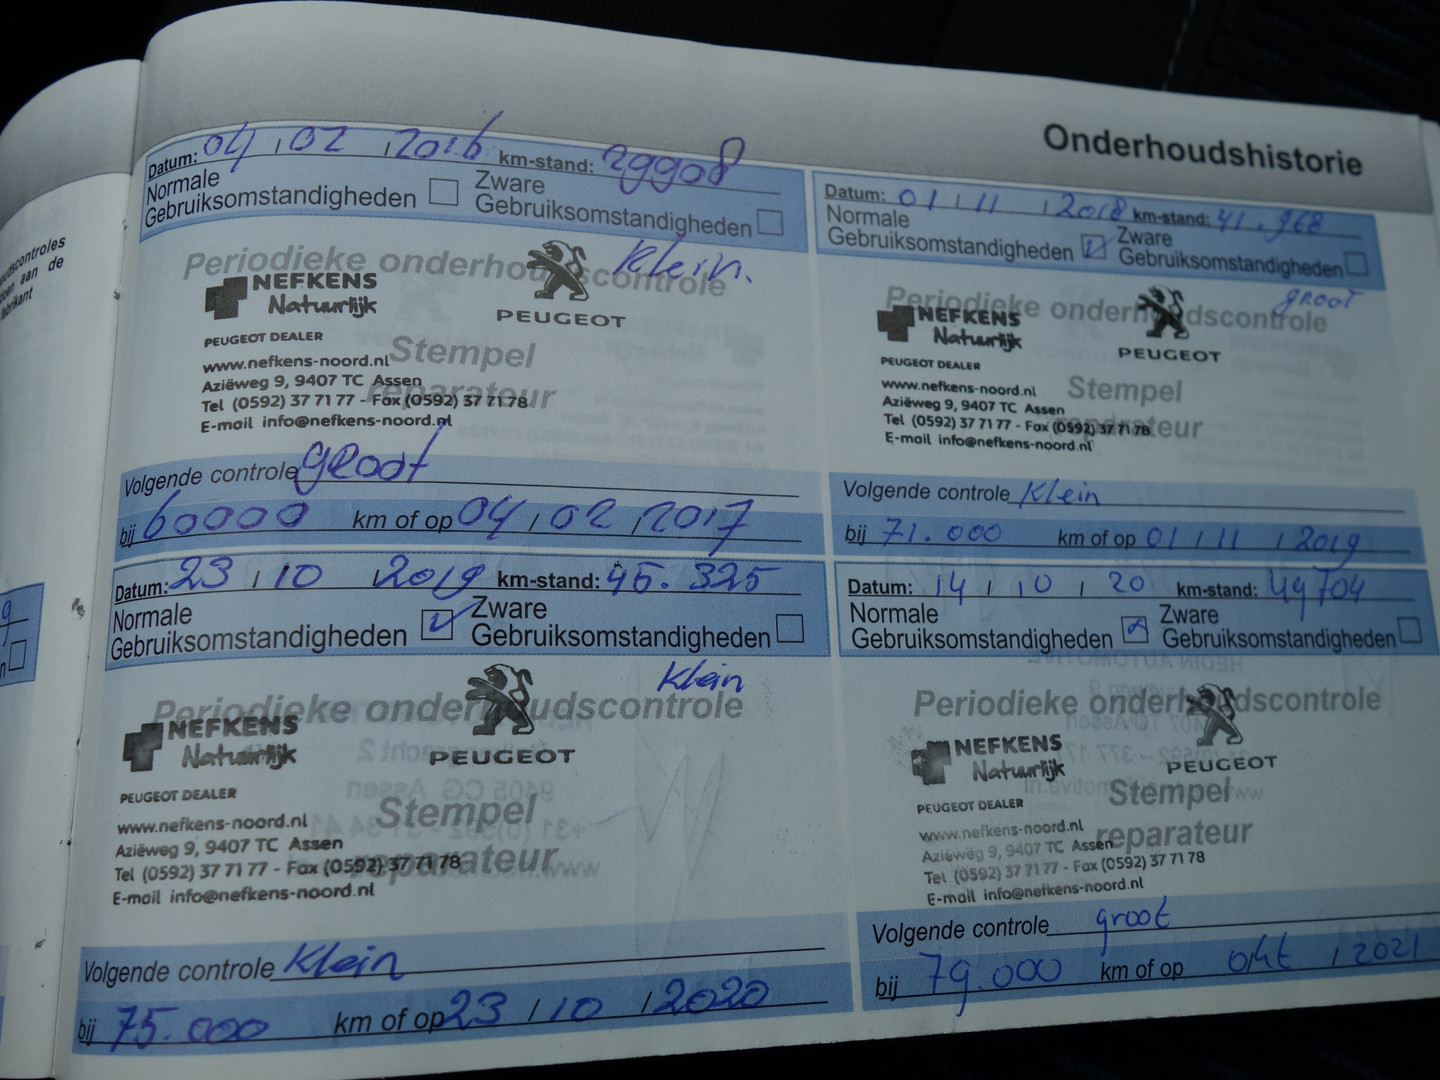 Onderhoudshistorie
Datum: 04 / 02 / 2016 km-stand: 29908
Normale Gebruiksomstandigheden
Zware Gebruiksomstandigheden
Periodieke onderhoudscontrole
Klein.
NEFKENS
Natuurlijk
PEUGEOT
PEUGEOT DEALER
Stempel
reparateur
www.nefkens-noord.nl
Aziëweg 9, 9407 TC Assen
Tel (0592) 37 71 77 - Fax (0592) 37 71 78
E-mail info@nefkens-noord.nl
Volgende controle groot
bij 60000 km of op 04 / 02 / 2017
Datum: 01 / 11 / 2018 km-stand: 41.968
Normale Gebruiksomstandigheden
Zware Gebruiksomstandigheden
Periodieke onderhoudscontrole
groot
NEFKENS
Natuurlijk
PEUGEOT
PEUGEOT DEALER
Stempel
reparateur
www.nefkens-noord.nl
Aziëweg 9, 9407 TC Assen
Tel (0592) 37 71 77 - Fax (0592) 37 71 78
E-mail info@nefkens-noord.nl
Volgende controle Klein
bij 71.000 km of op 01 / 11 / 2019
Datum: 23 / 10 / 2019 km-stand: 45.325
Normale Gebruiksomstandigheden
Zware Gebruiksomstandigheden
Periodieke onderhoudscontrole
Klein
NEFKENS
Natuurlijk
PEUGEOT
PEUGEOT DEALER
Stempel
reparateur
www.nefkens-noord.nl
Aziëweg 9, 9407 TC Assen
Tel (0592) 37 71 77 - Fax (0592) 37 71 78
E-mail info@nefkens-noord.nl
Volgende controle Klein
bij 75.000 km of op 23 / 10 / 2020
Datum: 14 / 10 / 20 km-stand: 49704
Normale Gebruiksomstandigheden
Zware Gebruiksomstandigheden
Periodieke onderhoudscontrole
NEFKENS
Natuurlijk
PEUGEOT
PEUGEOT DEALER
Stempel
reparateur
www.nefkens-noord.nl
Aziëweg 9, 9407 TC Assen
Tel (0592) 37 71 77 - Fax (0592) 37 71 78
E-mail info@nefkens-noord.nl
Volgende controle groot
bij 79.000 km of op okt / 2021